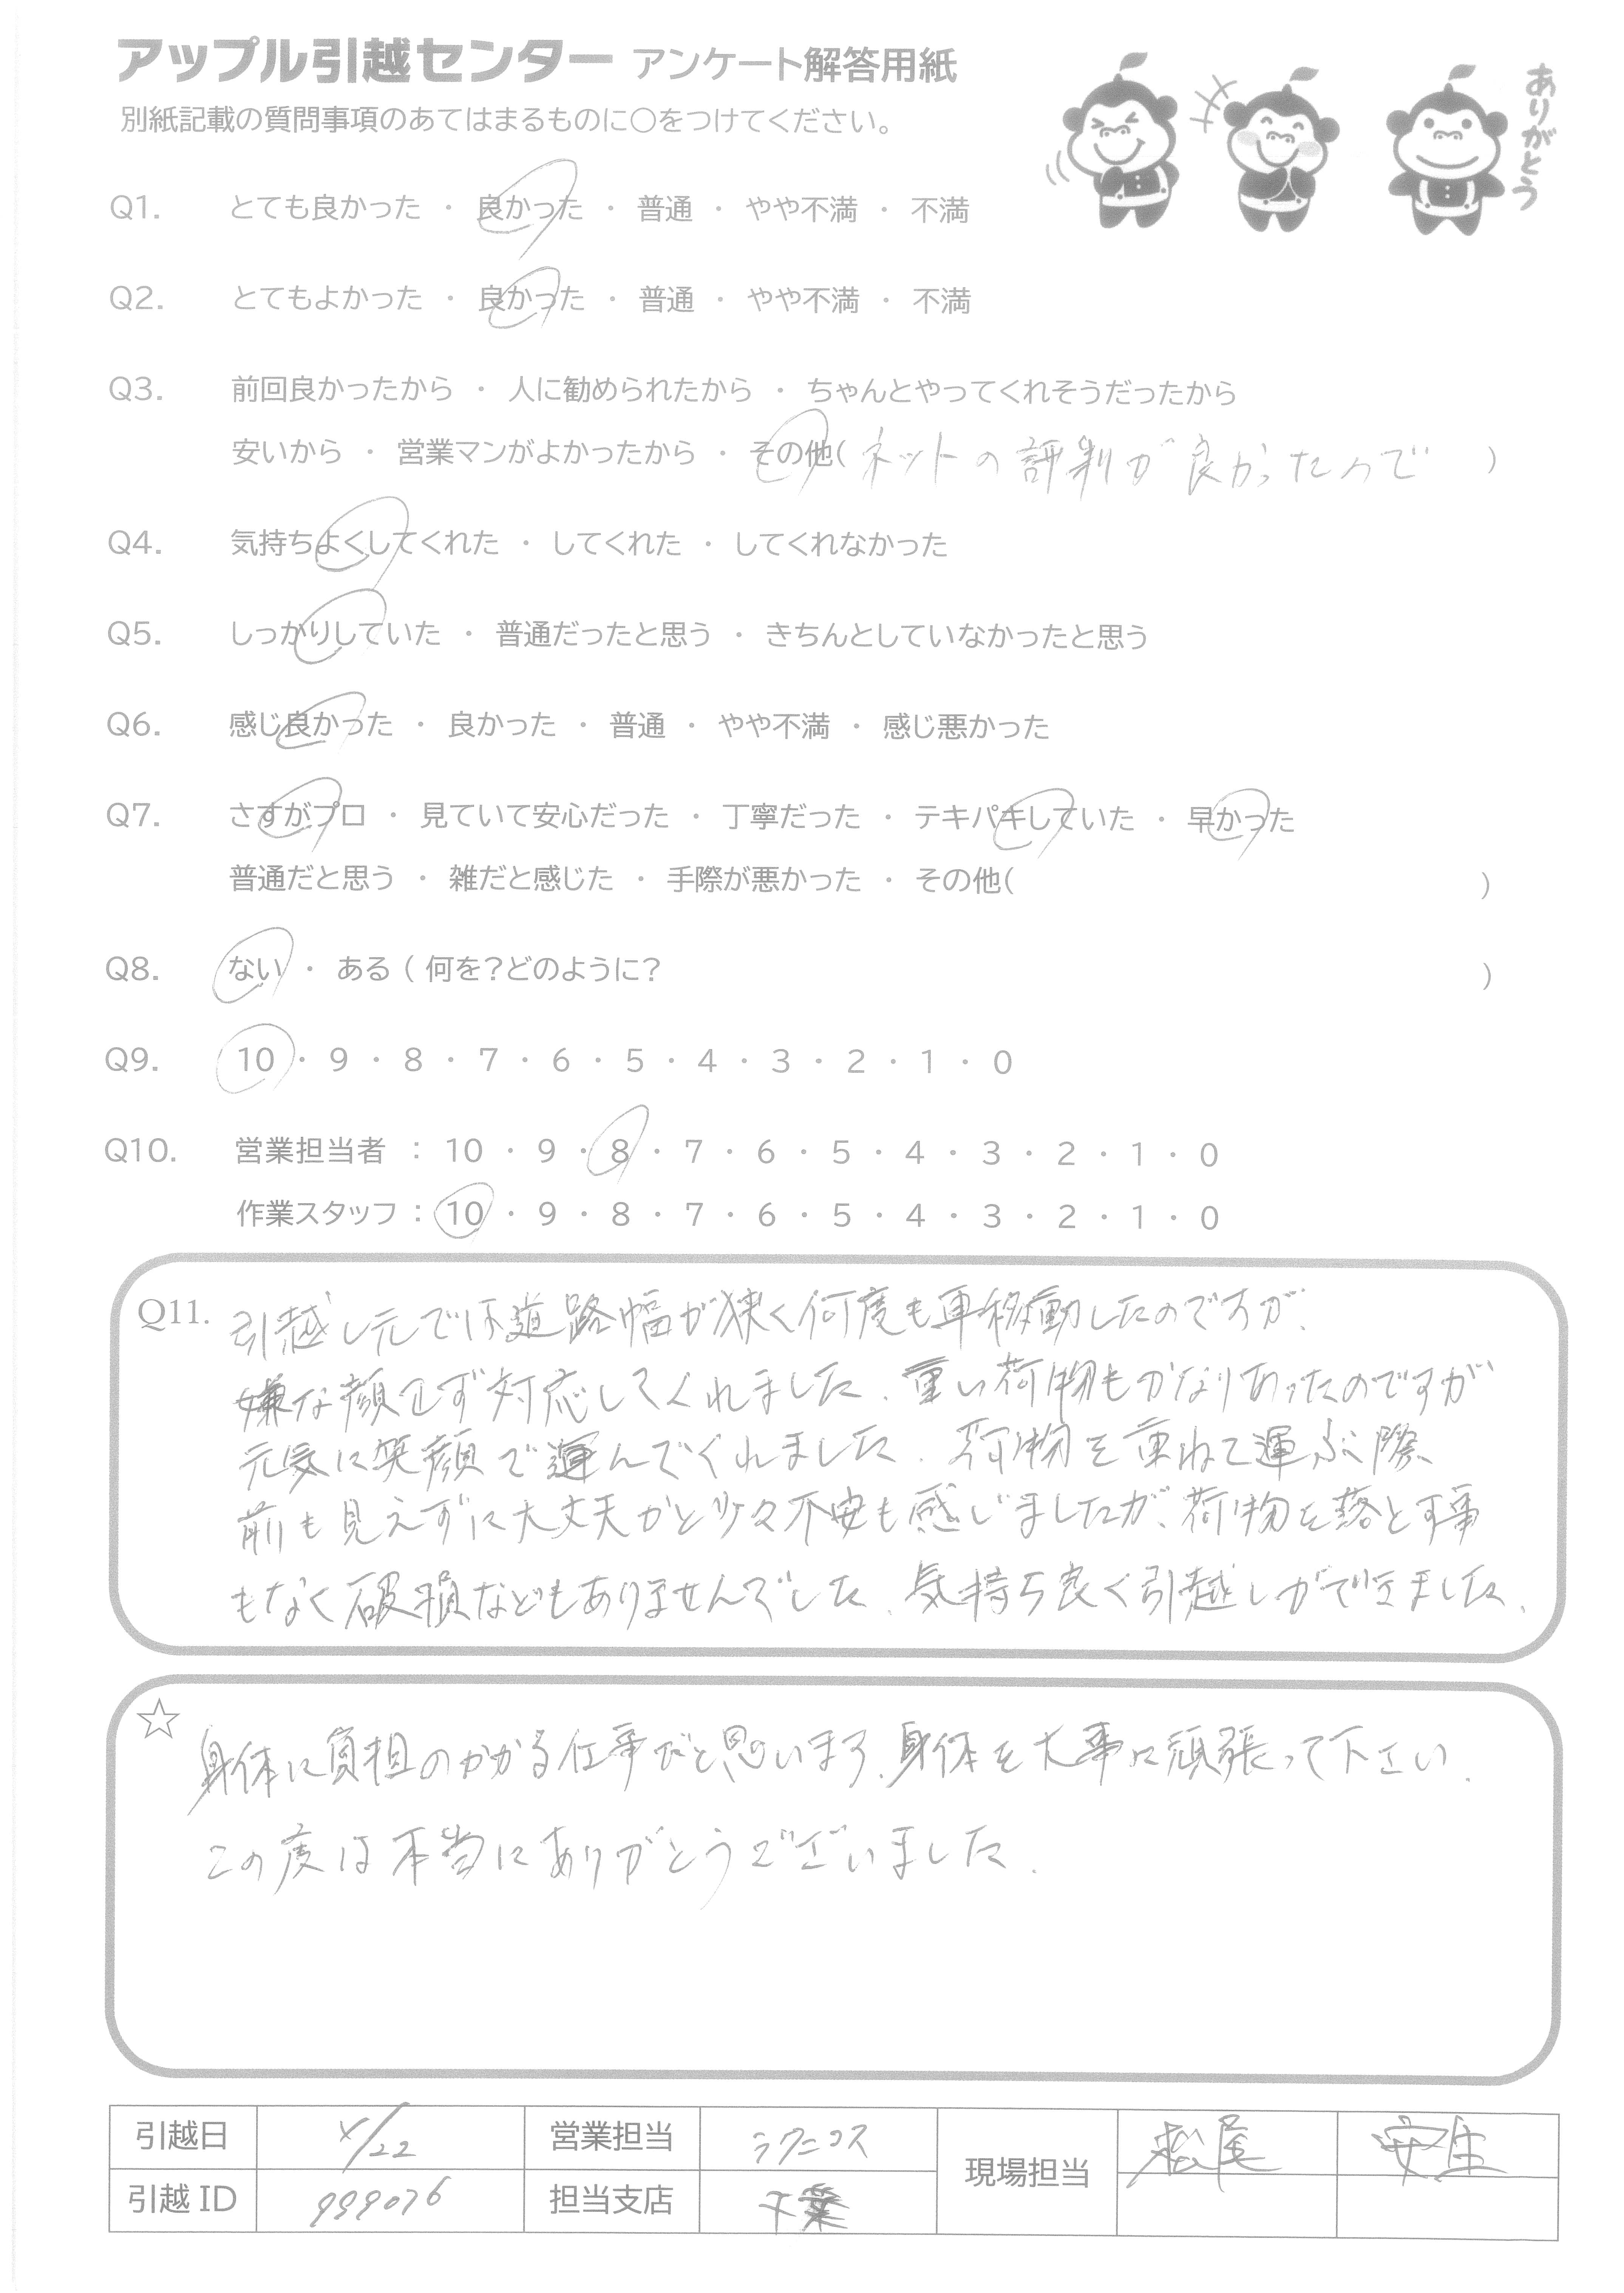 アップル引越センター アンケート解答用紙
別紙記載の質問事項のあてはまるものに○をつけてください。
ありがとう
Q1. とても良かった ・ 良かった ・ 普通 ・ やや不満 ・ 不満
Q2. とてもよかった ・ 良かった ・ 普通 ・ やや不満 ・ 不満
Q3. 前回良かったから ・ 人に勧められたから ・ ちゃんとやってくれそうだったから
安いから ・ 営業マンがよかったから ・ その他( ネットの評判が良かったので )
Q4. 気持ちよくしてくれた ・ してくれた ・ してくれなかった
Q5. しっかりしていた ・ 普通だったと思う ・ きちんとしていなかったと思う
Q6. 感じ良かった ・ 良かった ・ 普通 ・ やや不満 ・ 感じ悪かった
Q7. さすがプロ ・ 見ていて安心だった ・ 丁寧だった ・ テキパキしていた ・ 早かった
普通だと思う ・ 雑だと感じた ・ 手際が悪かった ・ その他( )
Q8. ない ・ ある ( 何を?どのように? )
Q9. 10 ・ 9 ・ 8 ・ 7 ・ 6 ・ 5 ・ 4 ・ 3 ・ 2 ・ 1 ・ 0
Q10. 営業担当者 : 10 ・ 9 ・ 8 ・ 7 ・ 6 ・ 5 ・ 4 ・ 3 ・ 2 ・ 1 ・ 0
作業スタッフ : 10 ・ 9 ・ 8 ・ 7 ・ 6 ・ 5 ・ 4 ・ 3 ・ 2 ・ 1 ・ 0
Q11. 引越し元では道路幅が狭く何度も車移動したのですが、
嫌な顔せず対応してくれました。重い荷物もかなりあったのですが
元気に笑顔で運んでくれました。荷物を重ねて運ぶ際、
前も見えずに大丈夫かと少々不安も感じましたが、荷物を落とす事
もなく破損などもありませんでした。気持ち良く引越しができました。
☆ 身体に負担のかかる仕事だと思います。身体を大事に頑張って下さい。
この度は本当にありがとうございました。
引越日 4/22 営業担当 ラクニコス 現場担当 松尾 安生
引越ID 999076 担当支店 千葉